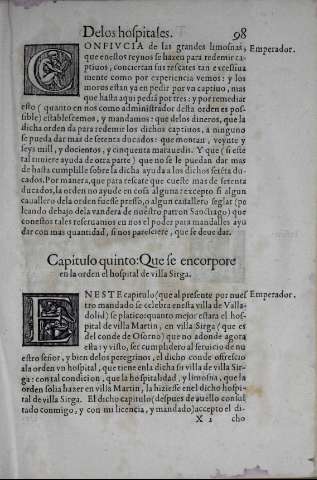 Delos hospitales. 98
CONFIVCIA de las grandes limosnas, Emperador.
que enestos reynos se hazen para redemir cap
tiuos, conciertan sus rescates tan excessiua
mente como por experiencia vemos: y los
moros estan ya en pedir por vn captiuo, mas
que hasta aqui pedia por tres: y por remediar
esto ( quanto en nos como administrador desta orden es pos-
sible) establescemos, y mandamos: que delos dineros, que la
dicha orden da para redemir los dichos captiuos, a ninguno
se pueda dar mas de setenta ducados: que montan, veynte y
seys mill, y dozientos, y cinquenta marauedis. Y que ( si este
tal tuuiere ayuda de otra parte) que no se le puedan dar mas
de hasta cumplille sobre la dicha ayuda a los dichos setēta du-
cados. Por manera, que para rescate que cueste mas de setenta
ducados, la orden no ayude en cosa alguna: excepto si algun
cauallero dela orden fuesse presso, o algun cauallero seglar (pe
leando debaxo dela vandera de nuestro patron Sanctiago) que
conestos tales reseruamos en nos el poder para mandalles ayu
dar con mas quantidad, si nos paresciere, que se deue dar.
Capitulo quinto: Que se encorpore
en la orden el hospital de villa Sirga.
ENESTE capitulo (que al presente por nues Emperador.
tro mandado se celebra enesta villa de Valla-
dolid) se platico: quanto mejor estara el hos-
pital de villa Martin, en villa Sirga ( que es
del conde de Osorno) que no adonde agora
esta: y visto, ser cumplidero al seruicio de nu
estro señor, y bien delos peregrinos, el dicho conde offrescio
ala orden vn hospital, que tiene enla dicha su villa de villa Sir-
ga: con tal condicion, que la hospitalidad, y limosna, que la
orden solia hazer en villa Martin, la hiziesse enel dicho hospi-
tal de villa Sirga. El dicho capitulo (despues de auello consul
tado conmigo, y con mi licencia, y mandado) accepto el di-
X 2 cho